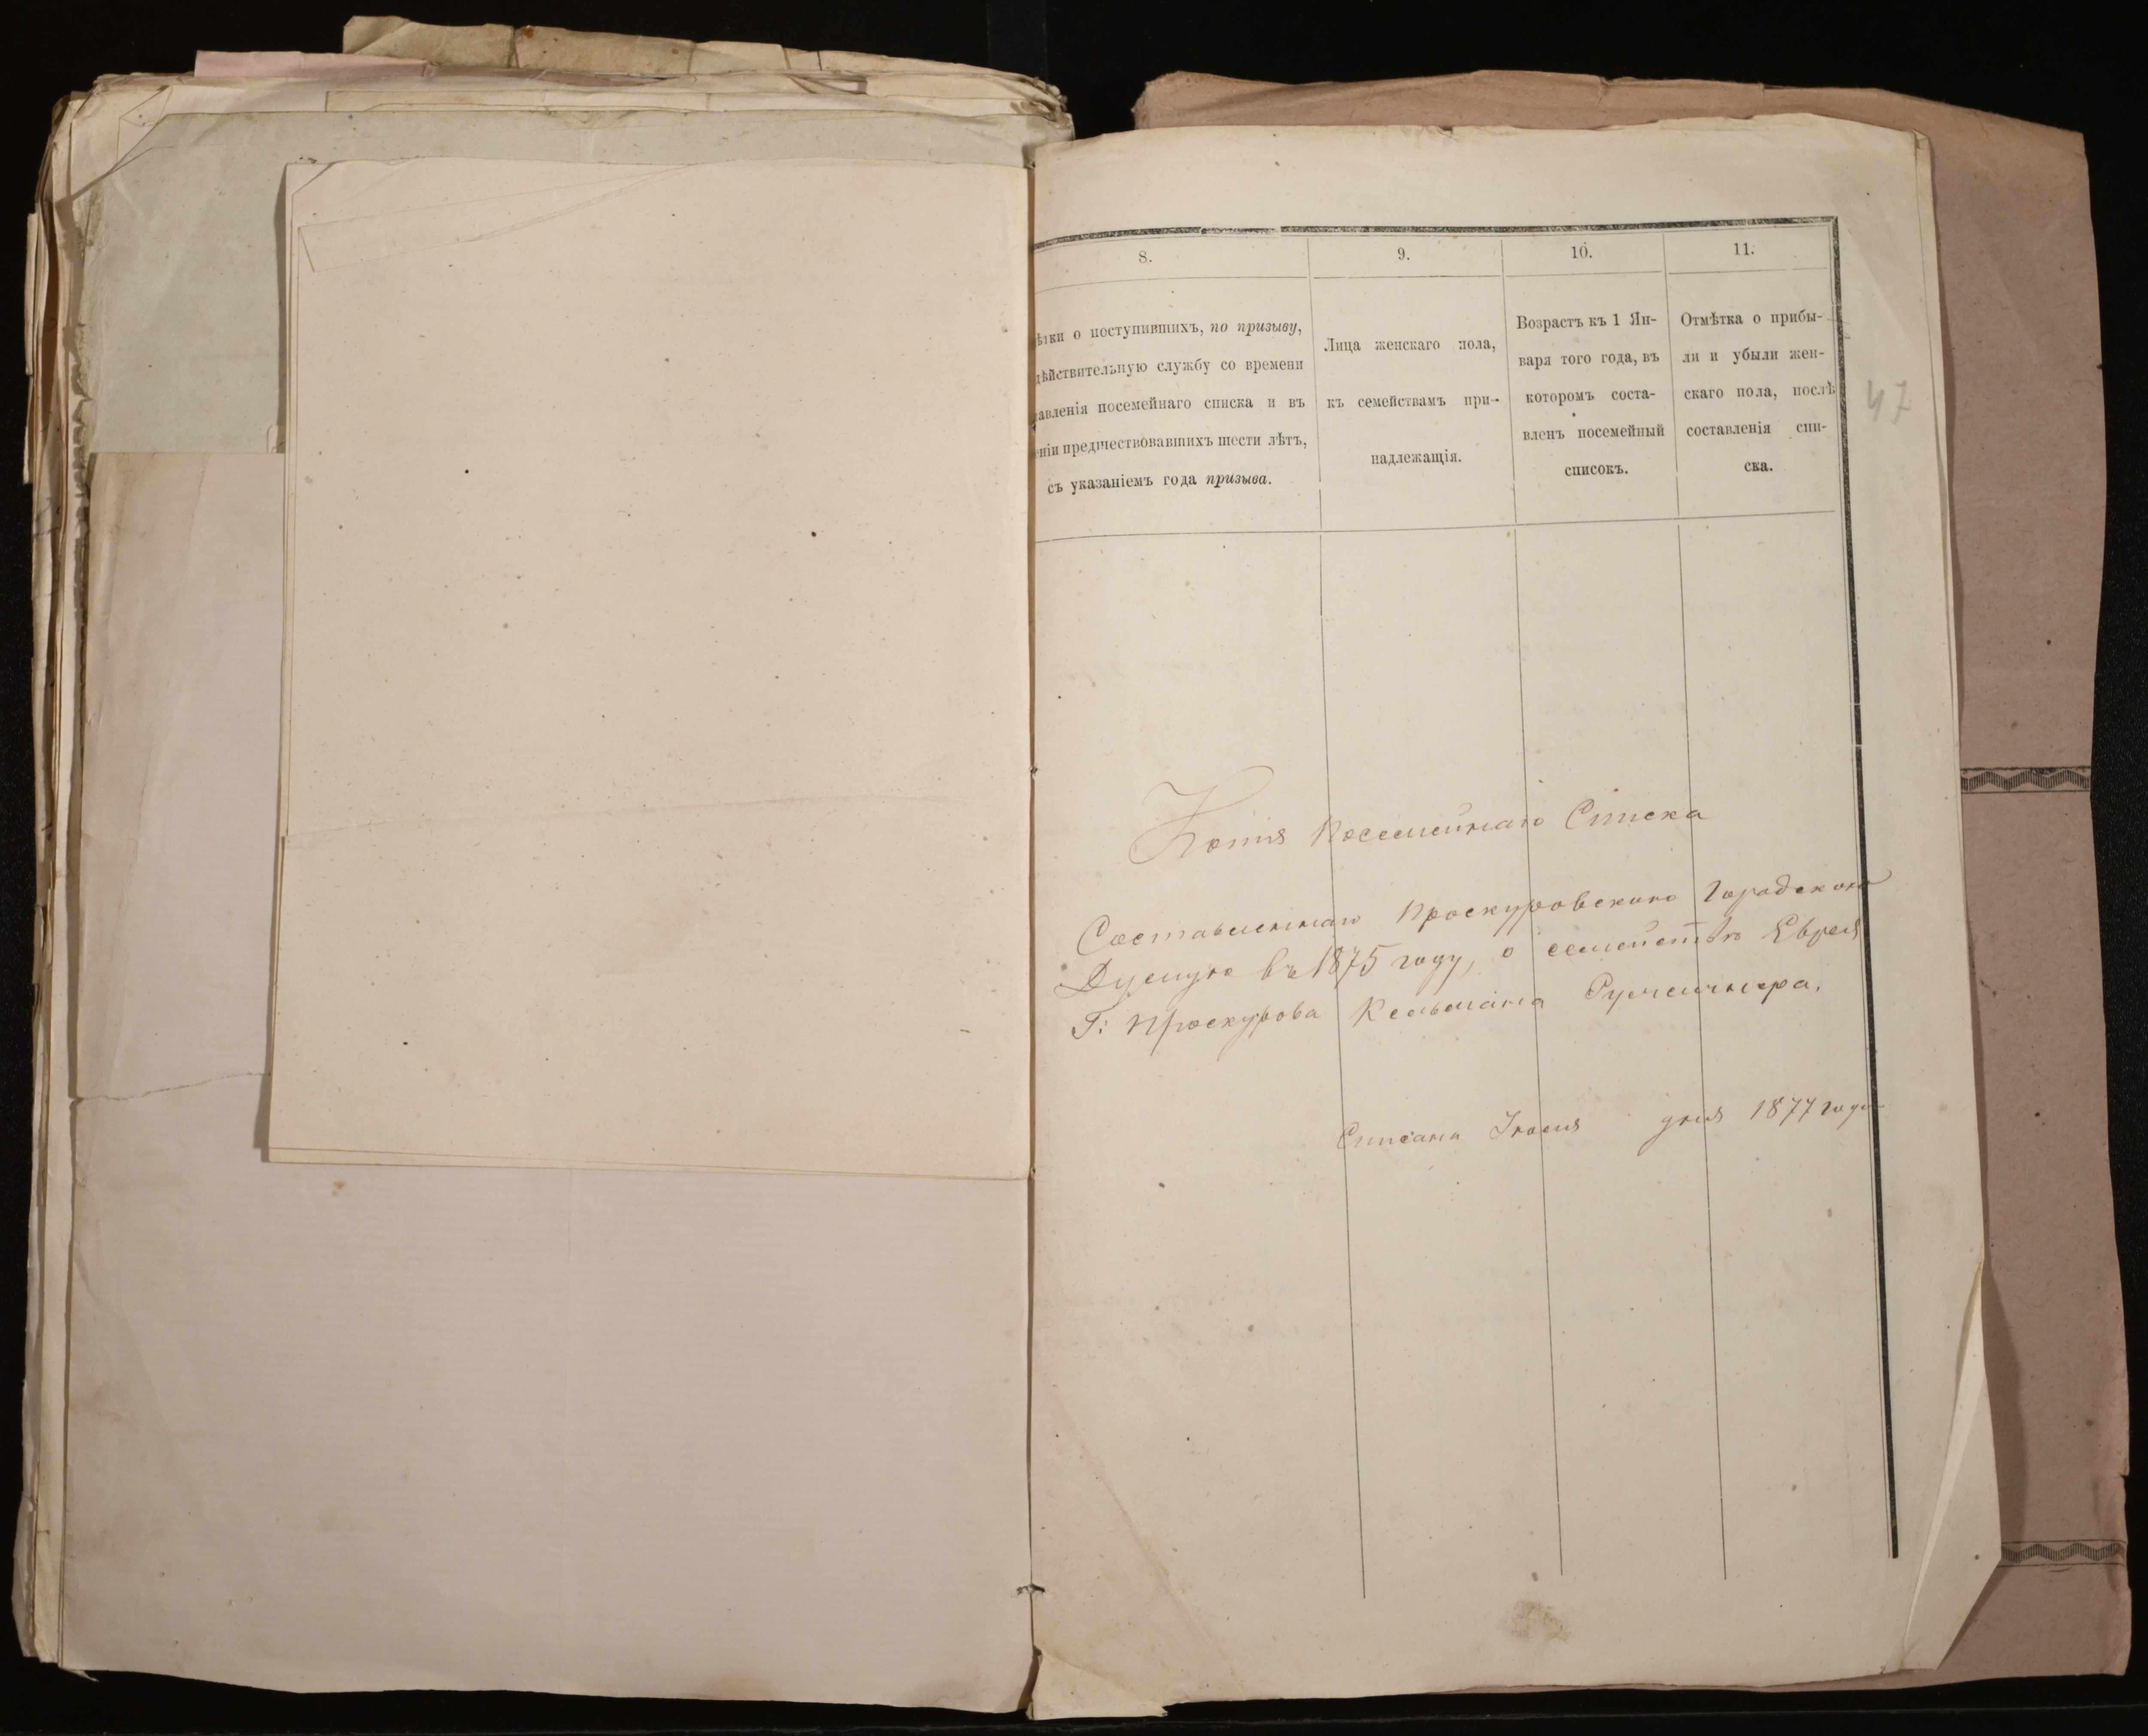 8.
9.
10.
11.
ѣтки о поступившихъ, по призыву,
дѣйствительную службу со времени
тавленія посемейнаго списка и въ
ніи предшествовавшихъ шести лѣтъ,
съ указаніемъ года призыва.
Лица женскаго пола,
къ семействамъ при-
надлежащія.
Возрастъ къ 1 Ян-
варя того года, въ
которомъ соста-
вленъ посемейный
списокъ.
Отмѣтка о прибы-
ли и убыли жен-
скаго пола, послѣ
составленія спи-
ска.
47
Копія Посемейнаго Списка
Составленнаго Проскуровскою Городскою
Думую въ 1875 году, о семействѣ Еврея
Г: Проскурова Кельмана
Списана Іюня дня 1877 года